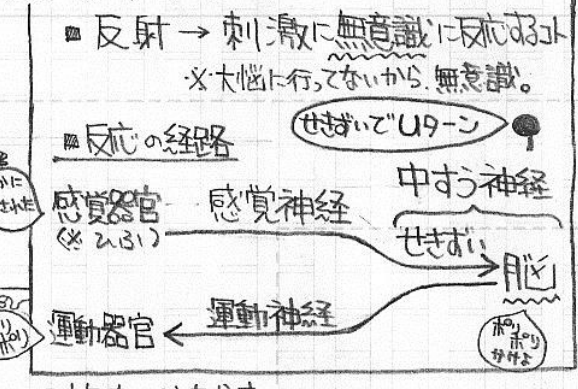 ■ 反射 → 刺激に無意識に反応するコト
※大脳に行ってないから、無意識。
せきずいでUターン
■反応の経路
中すう神経
感覚器官 感覚神経
(※ひふ)
せきずい
脳
運動神経
運動器官
ポリ
ポリ
かけよ